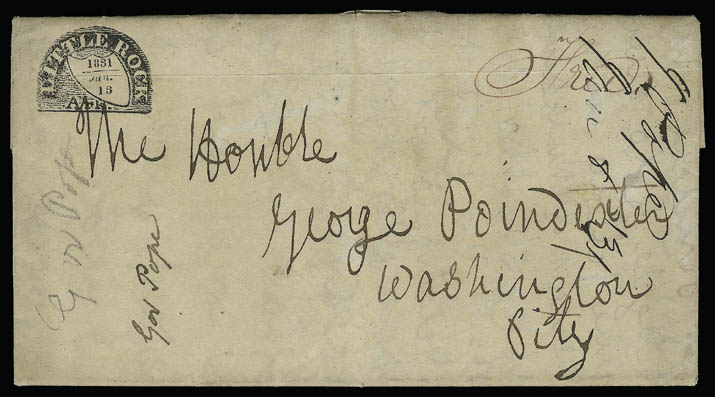 LITTLE ROCK
1831
JAN.
13
Free
The Honble
George Poindexter
Washington
City
Gov Pope
Gov Pope